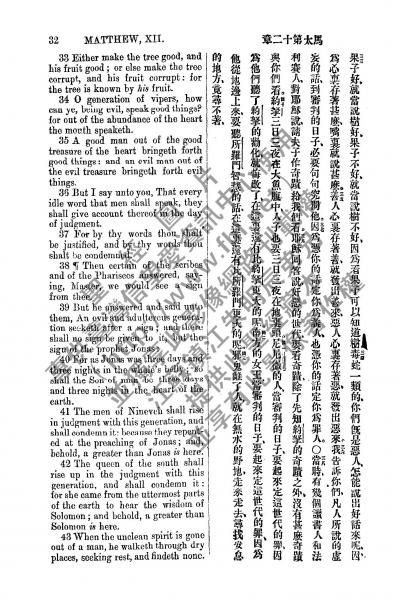 32 MATTHEW, XII.
33 Either make the tree good, and
his fruit good ; or else make the tree
corrupt, and his fruit corrupt : for
the tree is known by his fruit.
34 O generation of vipers, how
can ye, being evil, speak good things?
for out of the abundance of the heart
the mouth speaketh.
35 A good man out of the good
treasure of the heart bringeth forth
good things : and an evil man out of
the evil treasure bringeth forth evil
things.
36 But I say unto you, That every
idle word that men shall speak, they
shall give account thereof in the day
of judgment.
37 For by thy words thou shalt
be justified, and by thy words thou
shalt be condemned.
38 ¶ Then certain of the scribes
and of the Pharisees answered, say-
ing, Master, we would see a sign
from thee.
39 But he answered and said unto
them, An evil and adulterous genera-
tion seeketh after a sign ; and there
shall no sign be given to it, but the
sign of the prophet Jonas :
40 For as Jonas was three days and
three nights in the whale's belly ; so
shall the Son of man be three days
and three nights in the heart of the
earth.
41 The men of Nineveh shall rise
in judgment with this generation, and
shall condemn it : because they repent-
ed at the preaching of Jonas ; and,
behold, a greater than Jonas is here.
42 The queen of the south shall
rise up in the judgment with this
generation, and shall condemn it :
for she came from the uttermost parts
of the earth to hear the wisdom of
Solomon ; and behold, a greater than
Solomon is here.
43 When the unclean spirit is gone
out of a man, he walketh through dry
places, seeking rest, and findeth none.
馬太第十二章
果子好。就當說樹好。果子不好。就當說樹不好。因為看果子可以知道樹。毒蛇一類的你們。旣是惡人。怎能說出好話來呢。因
為心裏存著甚麽。嘴裏就說甚麽。善人心裏存著善。就發出善來。惡人心裏存著惡。就發出惡來。我告訴你們。凡人所說的虛
妄的話。到審判的日子。必要句句究問他。因為憑你的話定你為義人。也憑你的話定你為罪人。〇當時有幾個讀書人和法
利賽人對耶穌說。請夫子作奇蹟給我們看。耶穌回答說。奸惡的世代。要看奇蹟。除了先知約拏的奇蹟之外。沒有甚麽奇蹟
與你們看。約拏三日三夜在大魚腹中。人子也要三日三夜在地裏頭。尼尼微的人。當審判的日子。要起來定這世代的罪。因
為他們聽了約拏的勸化。就悔改了。在這裏還有比約拏更大的呢。南方的女王。當審判的日子。要起來定這世代的罪。因為
他從地邊上來。要聽所羅門智慧的話。在這裏還有比所羅門更大的呢。邪鬼離了人。就在無水的野地走來走去。尋找安息
的地方。竟尋不著。